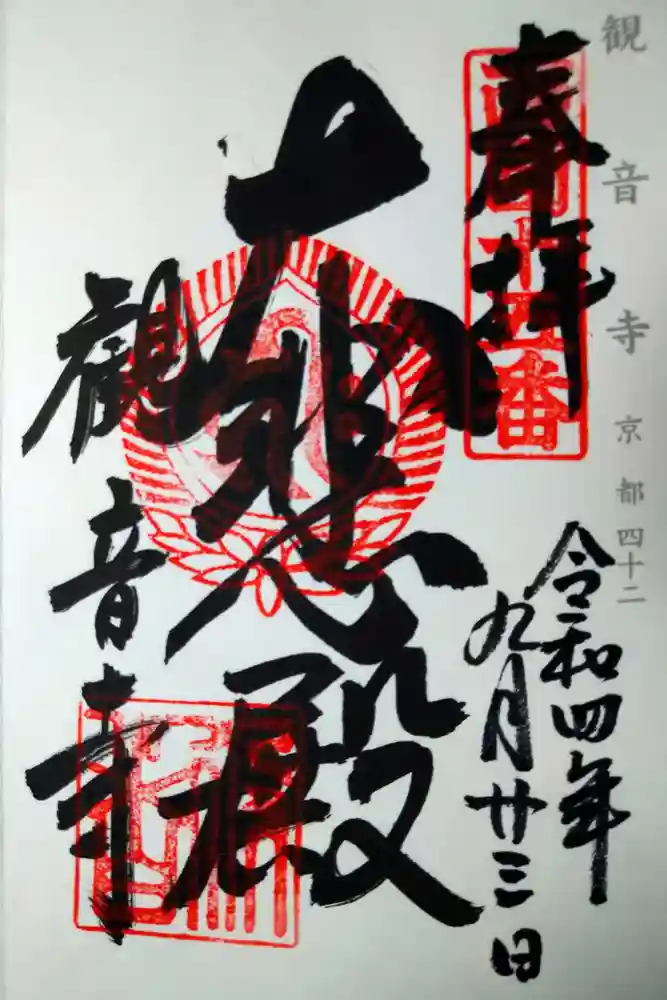 観音寺 京都四十二
奉拝
令和四年
九月廿三日
大悲殿
観音寺